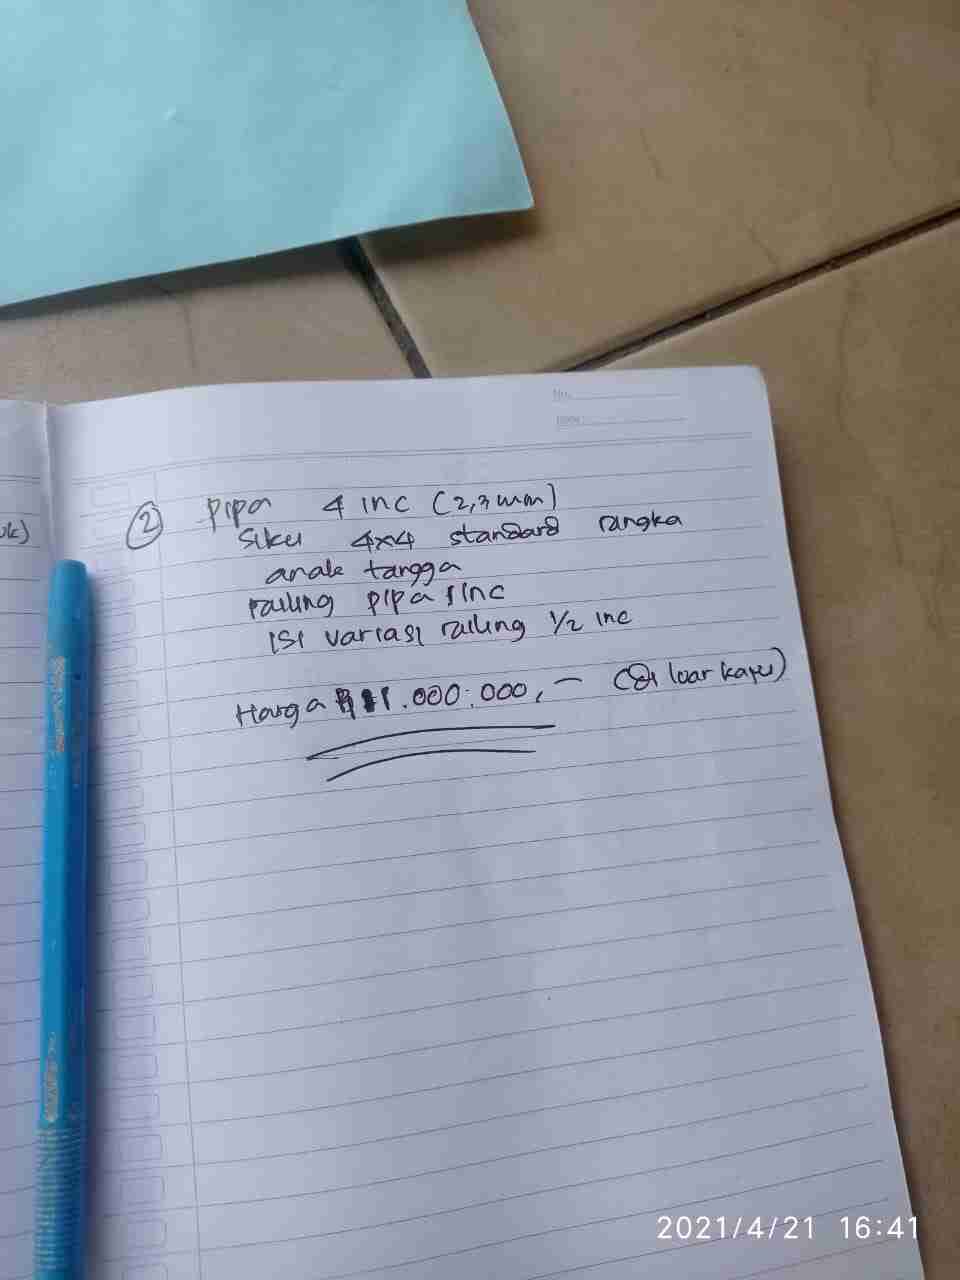 No.
Date
uk)
② pipa 4 inc (2,3 mm)
siku 4x4 standard rangka
anak tangga
railing pipa 1 inc
isi variasi railing 1/2 inc
Harga 11.000.000,- (di luar kayu)
2021/4/21 16:41